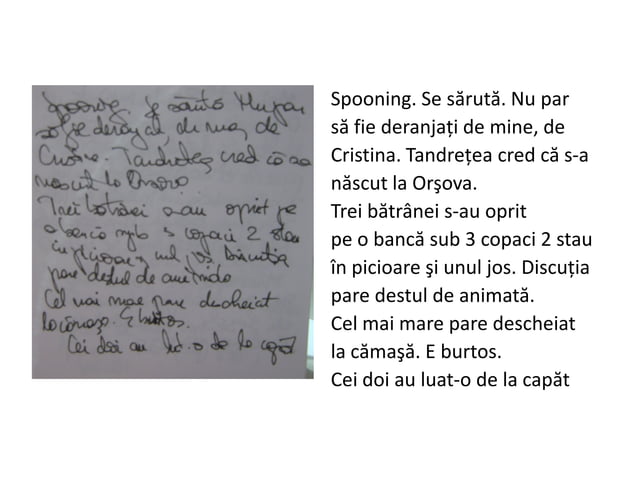 Spooning. Se sărută. Nu par
să fie deranjați de mine, de
Cristina. Tandrețea cred că s-a
născut la Orşova.
Trei bătrânei s-au oprit pe
o bancă sub 3 copaci 2 stau
în picioare și unul jos. Discuția
pare destul de animată
Cel mai mare pare descheiat
la cămașă. E burtos.
Cei doi au luat-o de la capăt
Spooning. Se sărută. Nu par
să fie deranjați de mine, de
Cristina. Tandrețea cred că s-a
născut la Orşova.
Trei bătrânei s-au oprit
pe o bancă sub 3 copaci 2 stau
în picioare şi unul jos. Discuția
pare destul de animată.
Cel mai mare pare descheiat
la cămaşă. E burtos.
Cei doi au luat-o de la capăt